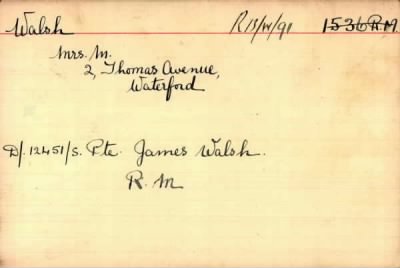 Walsh R 1536 R.M
Mrs. M.
2, Thomas Avenue,
Waterford
D/. 12451/S. Pte. James Walsh.
R. M